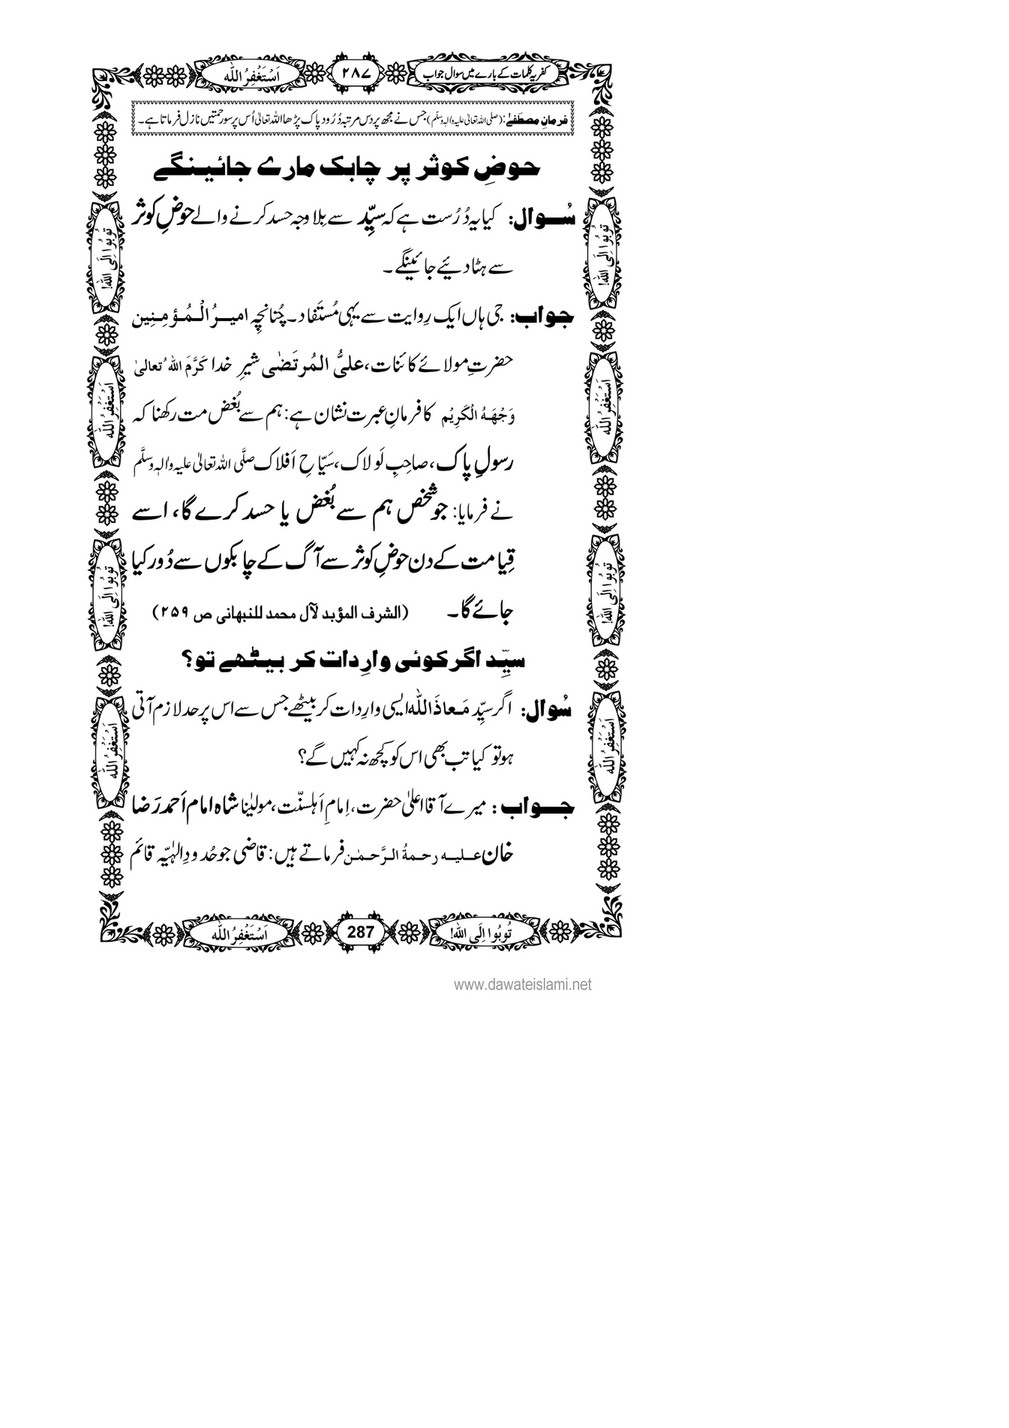 کفریہ کلمات کے بارے میں سوال جواب
۲۸۷
اَسْتَغْفِرُ اللہ
فرمانِ مصطفےٰ: (صلی اللہ تعالیٰ علیہ والہ وسلّم) جس نے مجھ پر دس مرتبہ دُرُود پاک پڑھا اللہ تعالیٰ اُس پر سو رحمتیں نازل فرماتا ہے۔
حوضِ کوثر پر چابک مارے جائینگے
سُوال: کیا یہ دُرُست ہے کہ سیِّد سے بِلا وجہ حسد کرنے والے حوضِ کوثر
سے ہٹا دیئے جائینگے۔
جواب: جی ہاں ایک رِوایت سے یہی مُستَفاد۔ چُنانچِہ امیرُ الْمُؤمِنِین
حضرتِ مولائے کائنات، علیُّ المُرتَضٰی شیرِ خدا کَرَّمَ اللہُ تعالیٰ
وَجْهَهُ الْكَرِيْم کا فرمانِ عبرت نشان ہے: ہم سے بُغض مت رکھنا کہ
رسولِ پاک، صاحِبِ لَولاک، سَیّاحِ اَفلاک صلَّی اللہ تعالیٰ علیہ والہٖ وسلَّم
نے فرمایا: جو شخص ہم سے بُغض یا حسد کرے گا، اسے
قِیامت کے دن حوضِ کوثر سے آگ کے چابکوں سے دُور کیا
جائے گا۔ (الشرف المؤبد لآل محمد للنبهانی ص ۲۵۹)
سیِّد اگر کوئی وارِدات کر بیٹھے تو؟
سُوال: اگر سیِّد مَعاذَ اللہ ایسی وارِدات کر بیٹھے جس سے اس پر حد لازم آتی
ہو تو کیا تب بھی اس کو کچھ نہ کہیں گے؟
جواب: میرے آقا اعلیٰ حضرت، اِمامِ اَہلسنّت، مولیٰنا شاہ امام اَحمد رَضا
خان علیہ رحمۃُ الرَّحمٰن فرماتے ہیں: قاضی جو حُدودِ الٰہیّہ قائم
تُوبُوا اِلَی اللہ!
اَسْتَغْفِرُ اللہ
تُوبُوا اِلَی اللہ!
اَسْتَغْفِرُ اللہ
تُوبُوا اِلَی اللہ!
اَسْتَغْفِرُ اللہ
تُوبُوا اِلَی اللہ!
اَسْتَغْفِرُ اللہ
تُوبُوا اِلَی اللہ!
287
اَسْتَغْفِرُ اللہ
www.dawateislami.net